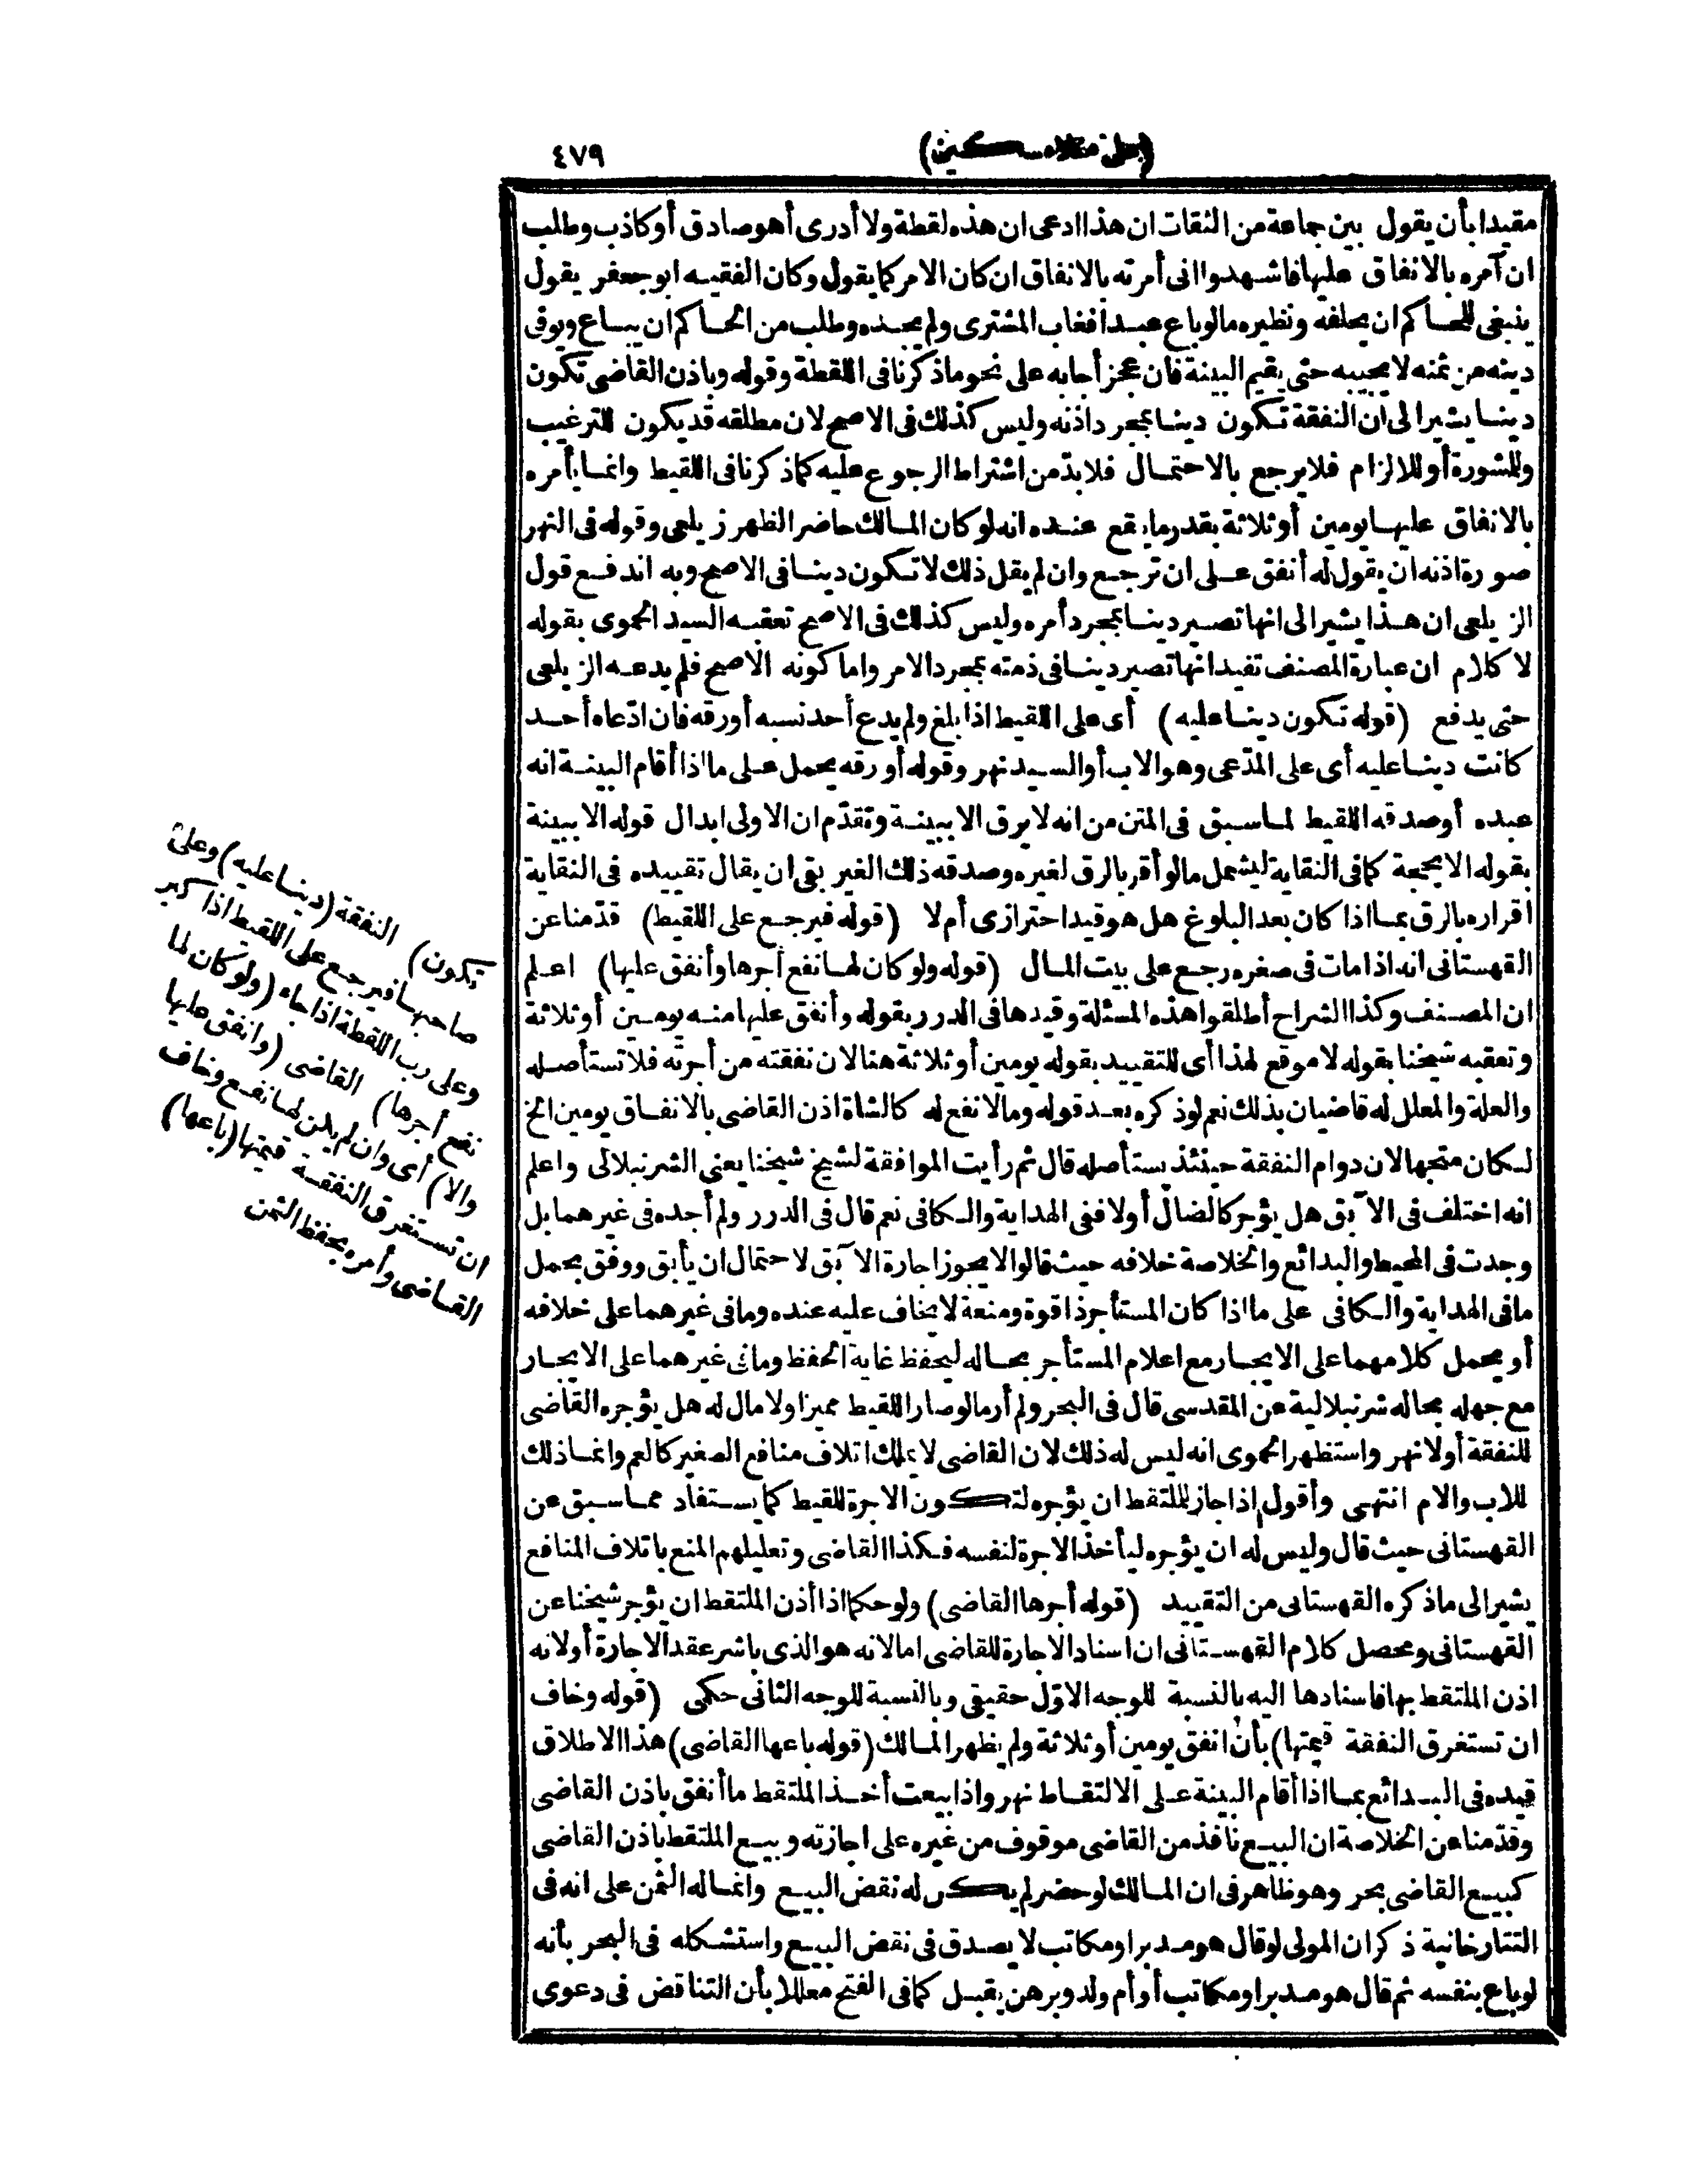 (على منلا مسكين)
٤٧٩
مقيدا بأن يقول بين جماعة من الثقات ان هذا ادعى ان هذه لقطة ولا أدرى أهو صادق أو كاذب وطلب
ان آمره بالانفاق عليها فاشهدوا انى أمرته بالانفاق ان كان الامر كما يقول وكان الفقيه ابو جعفر يقول
ينبغى للحاكم ان يحلفه ونظيره مالو باع عبدا فغاب المشترى ولم يجده وطلب من الحاكم ان يباع ويوفى
دينه من ثمنه لا يجيبه حتى يقيم البينة فان عجز أجابه على نحو ما ذكرنا فى اللقطة وقوله وباذن القاضى تكون
دينا يشير الى ان النفقة تكون دينا بمجرد اذنه وليس كذلك فى الاصح لان مطلقه قد يكون للترغيب
وللمشورة أو للالزام فلا يرجع بالاحتمال فلا بدّ من اشتراط الرجوع عليه كما ذكرنا فى اللقيط وانما يأمره
بالانفاق عليها يومين أو ثلاثة بقدر ما يقع عنده انه لو كان المالك حاضرا لظهر زيلعى وقوله فى النهر
صورة اذنه ان يقول له أنفق على ان ترجع وان لم يقل ذلك لا تكون دينا فى الاصح وبه اندفع قول
الزيلعى ان هذا يشير الى انها تصير دينا بمجرد أمره وليس كذلك فى الاصح تعقبه السيد الحموى بقوله
لا كلام ان عبارة المصنف تفيد انها تصير دينا فى ذمته بمجرد الامر واما كونه الاصح فلم يدعه الزيلعى
حتى يدفع (قوله تكون دينا عليه) أى على اللقيط اذا بلغ ولم يدع أحد نسبه أو رقه فان ادّعاه أحد
كانت دينا عليه أى على المدّعى وهو الاب أو السيد نهر وقوله أو رقه يحمل على ما اذا أقام البينة انه
عبده أو صدقه اللقيط لما سبق فى المتن من انه لا يرق الا ببينة وتقدّم ان الاولى ابدال قوله الا ببينة
بقوله الا بحجة كما فى النقاية ليشمل مالو أقر بالرق لغيره وصدقه ذلك الغير بقى ان يقال تقييده فى النقاية
اقراره بالرق بما اذا كان بعد البلوغ هل هو قيد احترازى أم لا (قوله فيرجع على اللقيط) قدّمنا عن
القهستانى انه اذا مات فى صغره رجع على بيت المال (قوله ولو كان لها نفع أجرها وأنفق عليها) اعلم
ان المصنف وكذا الشراح أطلقوا هذه المسئلة وقيدها فى الدرر بقوله وأنفق عليها منه يومين أو ثلاثة
وتعقبه شيخنا بقوله لا موقع لهذا أى للتقييد بقوله يومين أو ثلاثة هنا لان نفقته من أجرته فلا تستأصله
والعلة والمعلل له قاضيان بذلك نعم لو ذكره بعد قوله وما لا نفع له كالشاة اذن القاضى بالانفاق يومين الخ
لكان متجها لان دوام النفقة حينئذ يستأصله قال ثم رأيت الموافقة لشيخ شيخنا يعنى الشرنبلالى واعلم
انه اختلف فى الآبق هل يؤجر كالضالّ أولا ففى الهداية والكافى نعم قال فى الدرر ولم أجده فى غيرهما بل
وجدت فى المحيط والبدائع والخلاصة خلافه حيث قالوا لا يجوز اجارة الآبق لاحتمال ان يأبق ووفق بحمل
ما فى الهداية والكافى على ما اذا كان المستأجر ذا قوة ومنعة لا يخاف عليه عنده وما فى غيرهما على خلافه
أو يحمل كلامهما على الايجار مع اعلام المستأجر بحاله ليحفظ غاية الحفظ وما فى غيرهما على الايجار
مع جهله بحاله شرنبلالية عن المقدسى قال فى البحر ولم أر مالو صار اللقيط مميزا ولا مال له هل يؤجره القاضى
للنفقة أولا نهر واستظهر الحموى انه ليس له ذلك لان القاضى لا يملك اتلاف منافع الصغير كالعم وانما ذلك
للاب والام انتهى وأقول اذا جاز للملتقط ان يؤجره لتكون الاجرة للقيط كما يستفاد مما سبق عن
القهستانى حيث قال وليس له ان يؤجره ليأخذ الاجرة لنفسه فكذا القاضى وتعليلهم المنع باتلاف المنافع
يشير الى ما ذكره القهستانى من التقييد (قوله أجرها القاضى) ولو حكما اذا أذن الملتقط ان يؤجر شيخنا عن
القهستانى ومحصل كلام القهستانى ان اسناد الاجارة للقاضى اما لانه هو الذى باشر عقد الاجارة أو لانه
اذن الملتقط بها فاسنادها اليه بالنسبة للوجه الاوّل حقيقى وبالنسبة للوجه الثانى حكمى (قوله وخاف
ان تستغرق النفقة قيمتها) بأن انفق يومين أو ثلاثة ولم يظهر المالك (قوله باعها القاضى) هذا الاطلاق
قيده فى البدائع بما اذا أقام البينة على الالتقاط نهر واذا بيعت أخذ الملتقط ما أنفق باذن القاضى
وقدّمنا عن الخلاصة ان البيع نافذ من القاضى موقوف من غيره على اجازته وبيع الملتقط باذن القاضى
كبيع القاضى بحر وهو ظاهر فى ان المالك لو حضر لم يكن له نقض البيع وانما له الثمن على انه فى
التتارخانية ذكر ان المولى لو قال هو مدبر او مكاتب لا يصدق فى نقض البيع واستشكله فى البحر بأنه
لو باع بنفسه ثم قال هو مدبر او مكاتب أو أم ولد وبرهن يقبل كما فى الفتح معللا بأن التناقض فى دعوى
تكون) النفقة (دينا عليه) وعلى
صاحبها فيرجع على اللقيط اذا كبر
وعلى رب اللقطة اذا جاء (ولو كان لها
نفع أجرها) القاضى (وانفق عليها
والا) أى وان لم يكن لها نفع وخاف
ان تستغرق النفقة قيمتها (باعها)
القاضى وأمره بحفظ الثمن